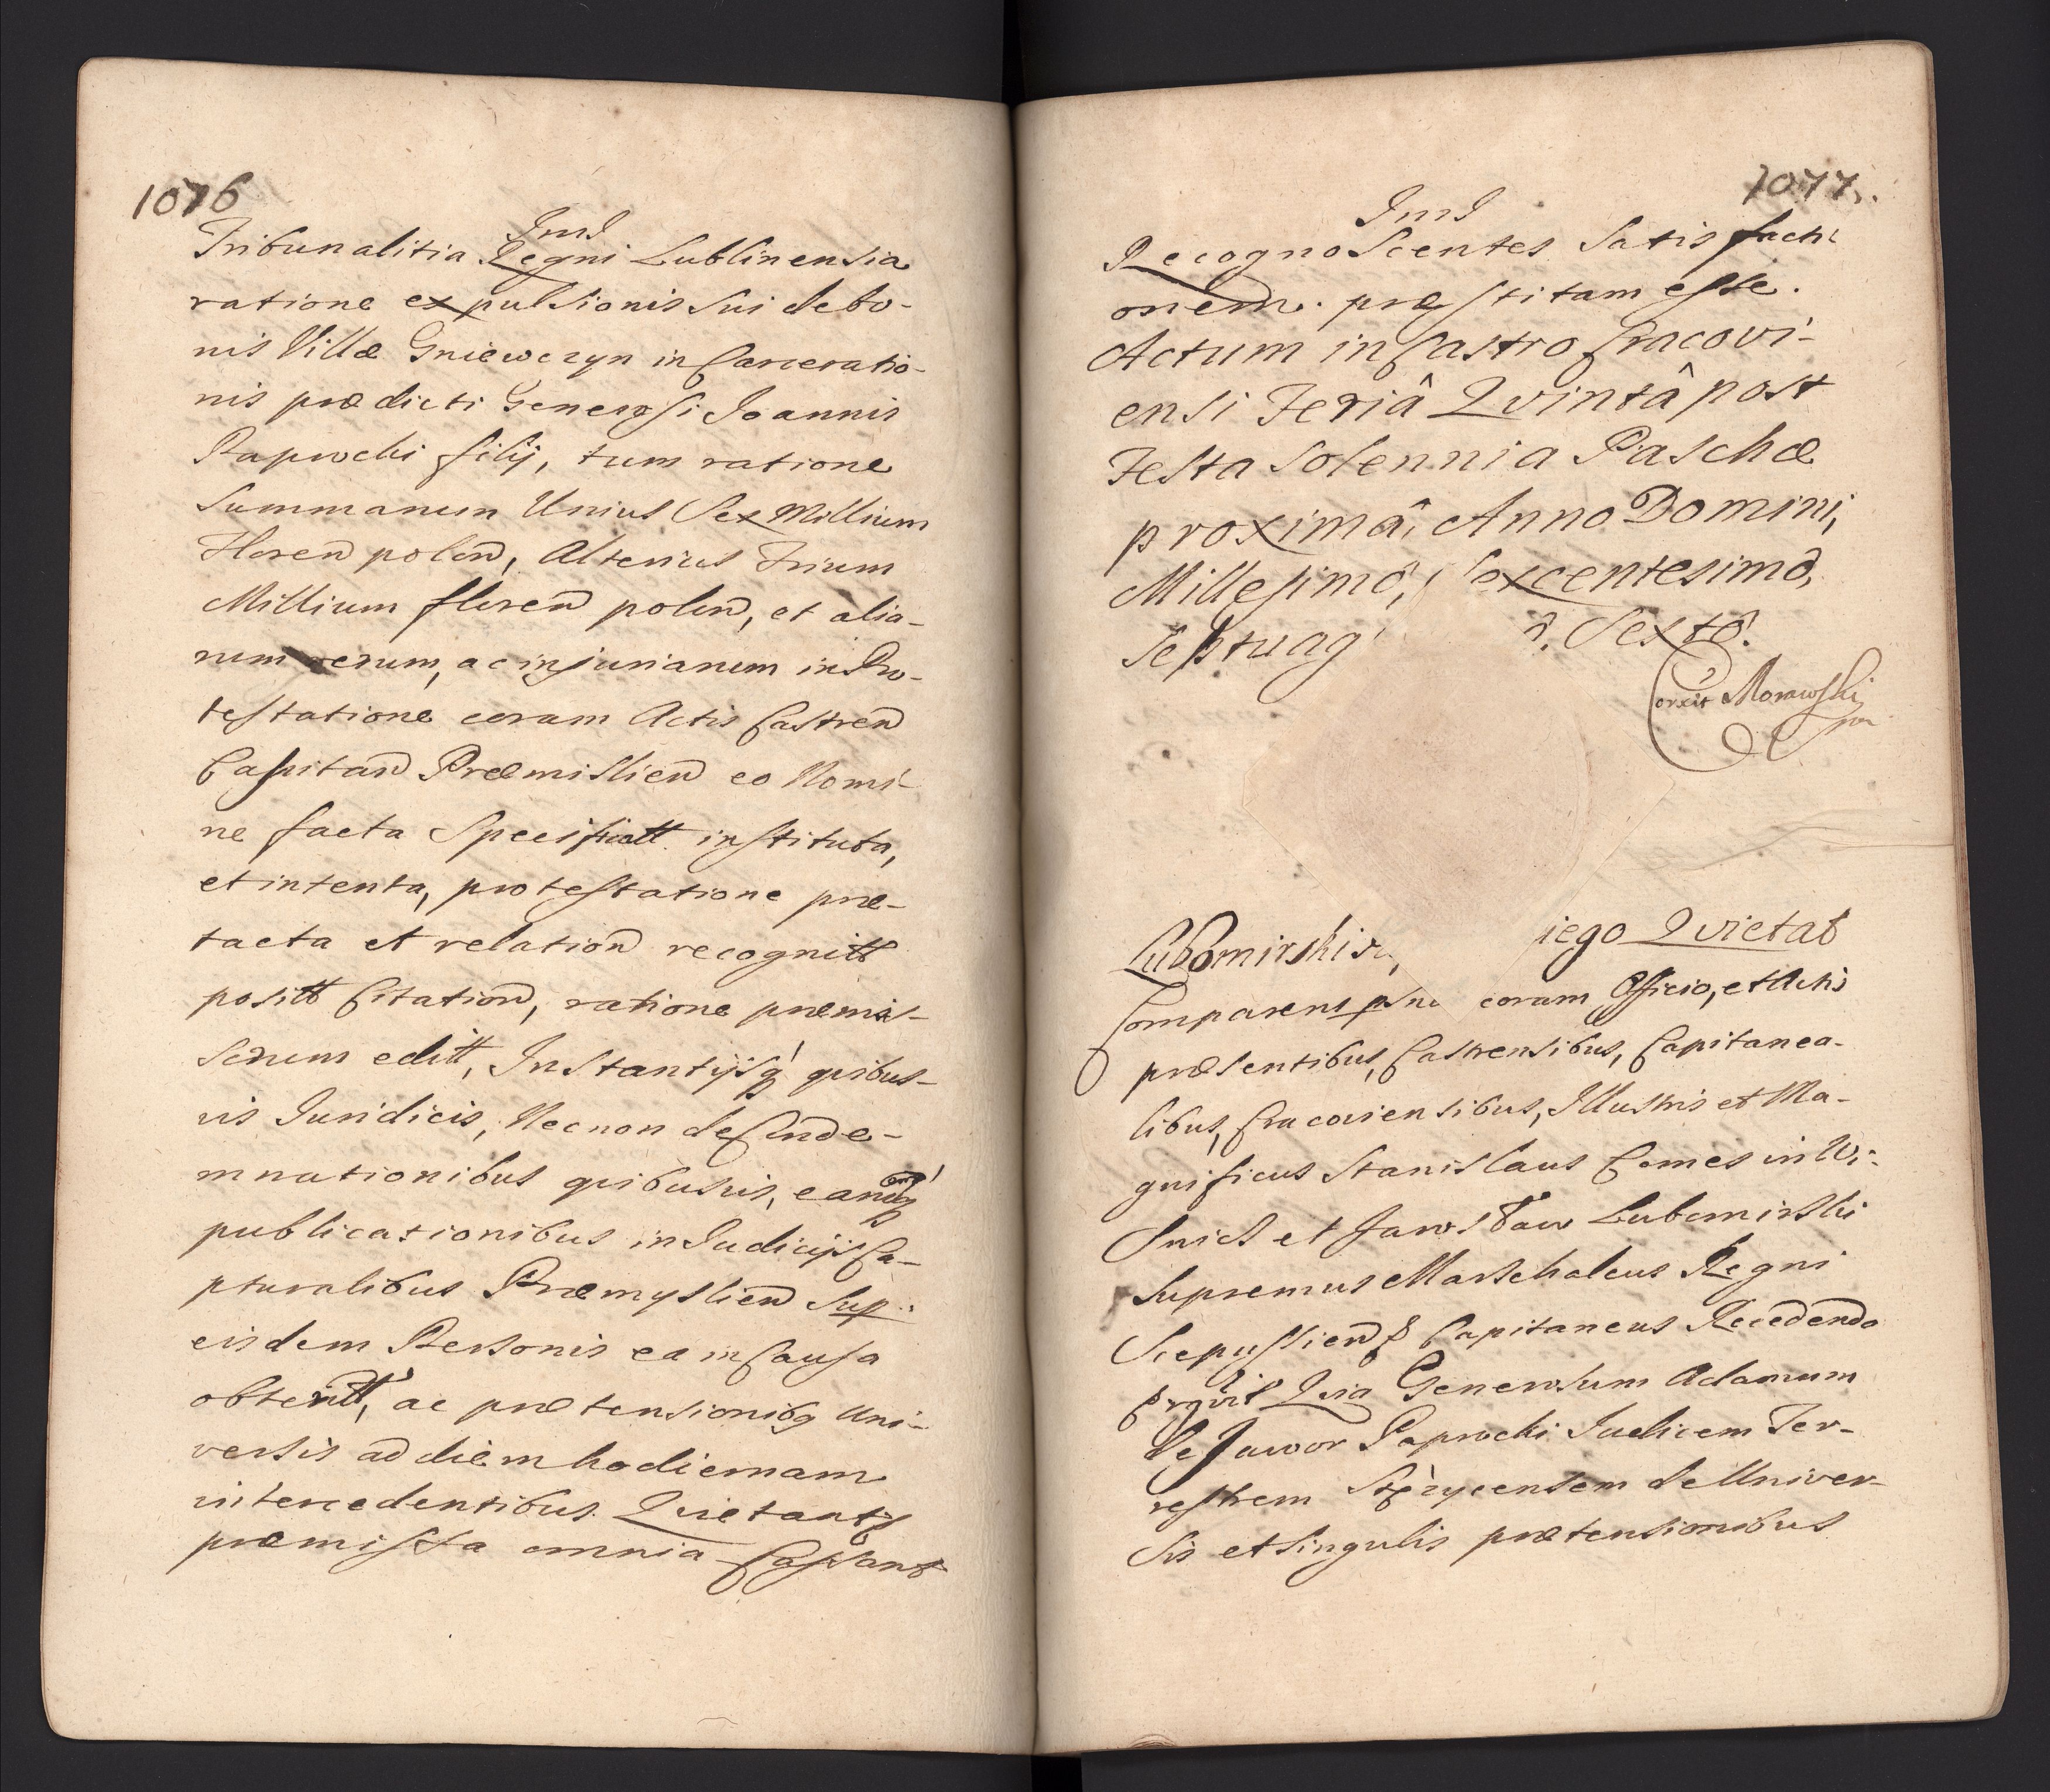 1076
Jnd
Tribunalitia Regni Lublinensia
ratione expulsionis sui de bo-
nis Villæ Gniewczyn incarceratio-
nis prædicti Generosi Joannis
Paprocki filij, tum ratione
Summarum Unius Sex Millium
Floren polon, Alterius Trium
Millium floren polon, et alia-
rum rerum, ac injuriarum in Pro-
testatione coram Actis Castren
Capitan Præmislien eo Nomi-
ne facta Specificatt instituta,
et intenta, protestatione præ-
tacta et relation recognitt
positt Citation, ratione præmis-
sorum editt, Instantijsq quibus-
vis Juridicis, Necnon de Conde-
mnationibus quibusvis, earumq
publicationibus in Judicijs Ca-
pturalibus Præmyslien Sup
eisdem Personis ea in Causa
obtentt, ac prætensionibq Uni-
versis ad diem hodiernam
intercedentibus Quietant
præmissa omnia Cassant
1077.
Jnd
Recognoscentes Satisfacti
onem præstitam esse.
Actum in Castro Cracovi-
ensi Feriâ Qvintâ post
Festa Solennia Paschæ
proximâ, Anno Domini,
Millesimô, Sexcentesimô,
Septuag ô, Sextô.
Corxit Morawski
Lubomirski iego Qvietat
Comparens coram Officio, et Actis
præsentibus, Castrensibus, Capitanea-
libus, Cracoviensibus, Illustris et Ma-
gnificus Stanislaus Comes in Wi-
Snicz et Jarosław Lubomirski
Supremus Marschalcus Regni
Scepussien Capitaneus Recedendo
Qvia Generosum Adamum
de Jawor Paprocki Judicem Ter-
restrem Stęzycensem de Univer-
sis et singulis prætensionibus